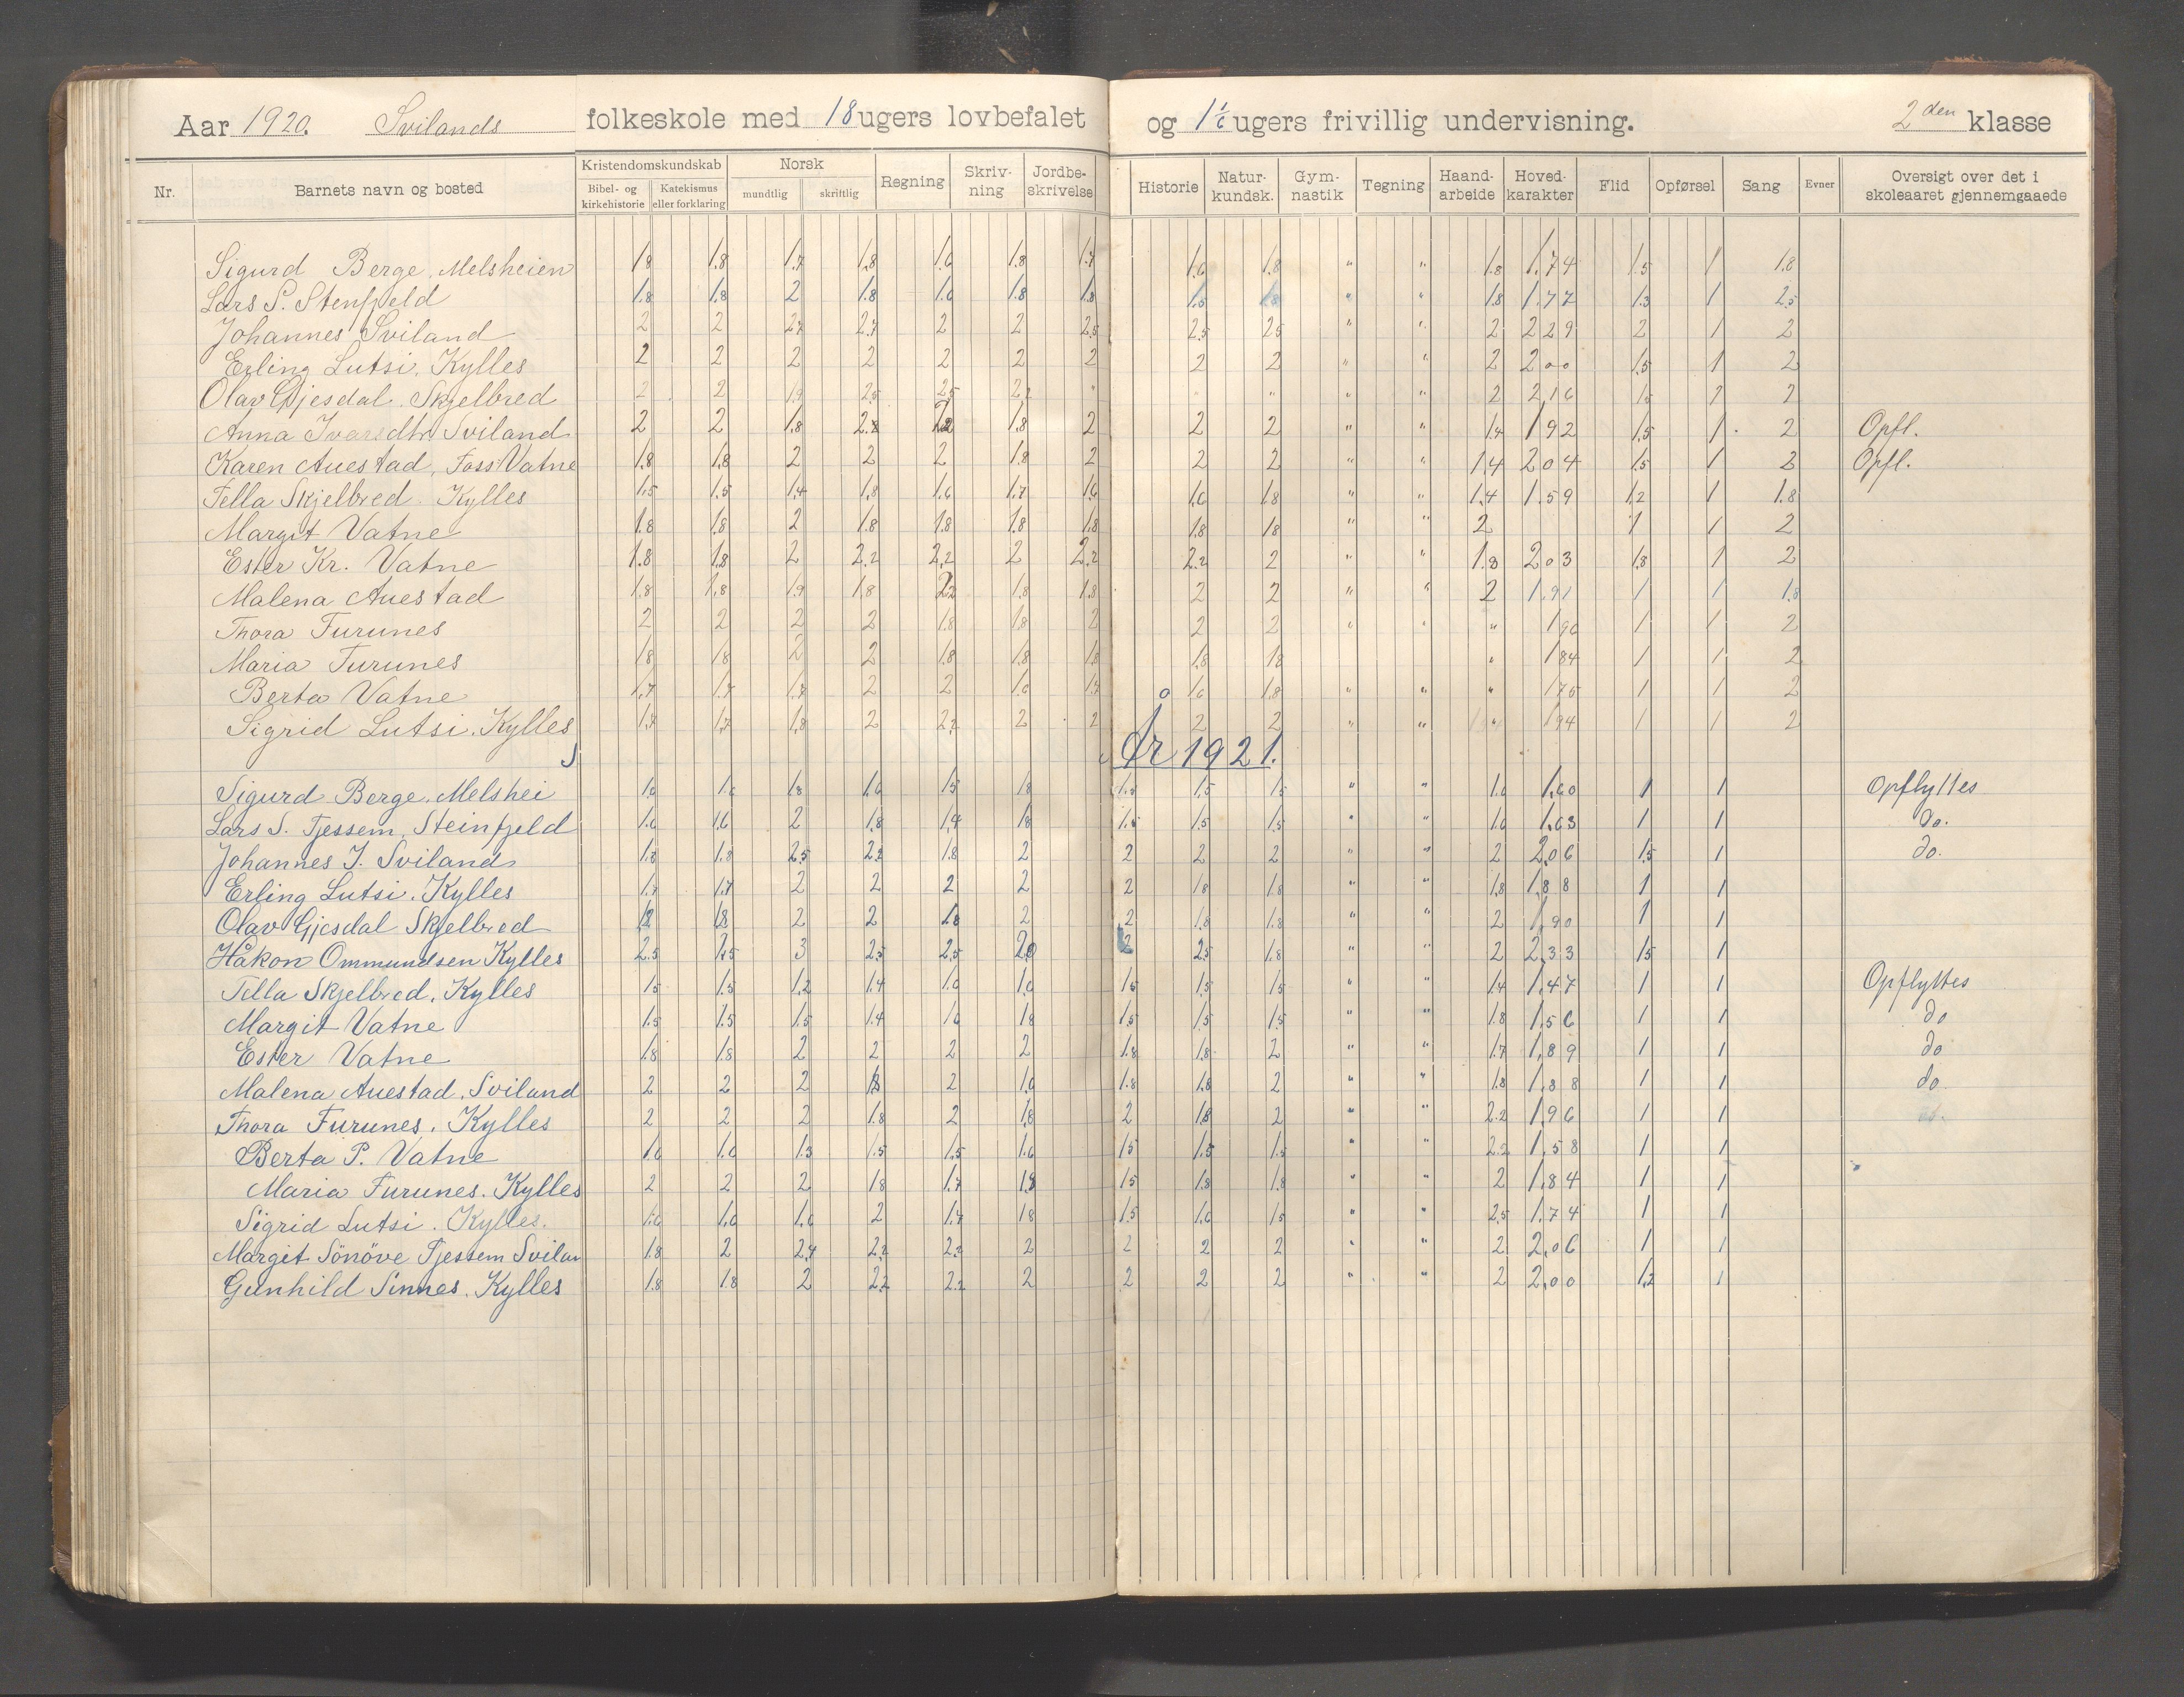 Aar 1920. Svilands folkeskole med 18 ugers lovbefalet og 1 1/6 ugers frivillig undervisning. 2den klasse
Nr. Barnets navn og bosted Kristendomskundskab Bibel- og kirkehistorie Katekismus eller forklaring Norsk mundtlig skriftlig Regning Skriv-ning Jordbe-skrivelse Historie Natur-kundsk. Gym-nastik Tegning Haand-arbeide Hoved-karakter Flid Opførsel Sang Evner Oversigt over det i skoleaaret gjennemgaaede
Sigurd Berge, Melsheien 1.8 1.8 1.7 1.8 1.6 1.8 1.7 1.6 1.8 " " 1.8 1.74 1.5 1 1.8
Lars S. Stenfjeld 1.8 1.8 2 1.8 1.6 1.8 1.8 1.5 1.8 " " 1.8 1.77 1.3 1 2.5
Johannes Sviland 2 2 2.7 2.7 2 2 2.5 2.5 2.5 " " 2 2 29 2 1 2
Erling Lutsi, Kylles 2 2 2 2 2 2 2 2 2 " " 2 2 00 1.5 1 2
Olav Gjesdal. Skjelbred 2 2 1.9 2.5 2.5 2.2 " " " " 2 2,16 2
Anna Ivarsdtr Sviland 2 2 1.8 2.2 1.8 2 2 2 " " 1.4 1 92 1.5 1 2 Opfl.
Karen Auestad, Foss Vatne 1.8 1.8 2 2 2 1.8 2 2 2 " " 1.4 2 04 1.5 1 2 Opfl.
Tella Skjelbred. Kylles 1.5 1.5 1.4 1.8 1.6 1.7 1.6 1.6 1.8 " " 1.4 1.59 1.2 1 1.8
Margit Vatne 1.8 1.8 2 1.8 1.8 1.8 1.8 1.8 1.8 " " 2 1 1 2
Ester Kr. Vatne 1.8 1.8 2 2.2 2.2 2 2.2 2.2 2 " " 1.8 2 03 1.8 1 2
Malena Auestad 1.8 1.8 1.9 1.8 2.2 1.8 1.8 2 2 " " 2 1.91 1 1 1.8
Thora Furunes 2 2 2 2 1.8 1.8 2 2 2 " " " 1 96 1 1 2
Maria Furunes 1.8 1.8 2 2 1.8 1.8 1.8 1.8 1.8 " 1 84 1 1 2
Berta Vatne 1.7 1.7 1.7 2 2 1.6 1.7 1.6 1.8 " " " 1 75 1 1 2
Sigrid Lutsi. Kylles 1.7 1.7 1.8 2 2.2 2 2 2 2 " " " 1 94 1 1 2
År 1921.
Sigurd Berge. Melshei 1.6 1.6 1.8 1.6 1.5 1.8 1.5 1.5 1.5 " " 1.6 1.60 1 1 Opflyttes
Lars S. Tjessem, Steinfjeld 1.6 1.6 2 1.8 1.4 1.8 1.5 1.5 1.5 " " 1.6 1.63 1 1 Do.
Johannes J. Sviland 1.8 1.8 2.5 2.2 1.8 2 2 2 2 " " 2 2,06 1.5 1 do.
Erling Lutsi. Kylles 1.7 1.7 2 2 2 2 2 1.8 1.8 " " 1.8 1,88 1 1
Olav Gjesdal Skjelbred 1.8 1.8 2 2 1.8 2 2 1.8 1.8 " " 2 1,90 1 1
Håkon Ommundsen Kylles 2.5 2.5 3 2.5 2.5 2 2.5 1.8 " " 2 2,33 1.5 1
Tella Skjelbred, Kylles 1.5 1.5 1.2 1.4 1.6 1.6 1.5 1.5 1.5 " " 1.4 1,47 1 1 Opflyttes
Margit Vatne 1.5 1.5 1.5 1.4 1.6 1.8 1.5 1.5 1.5 " " 1.8 1,56 1 1 do
Ester Vatne 1.8 1.8 2 2 2 2 1.8 1.8 2 " " 1.7 1,89 1 1 do
Malena Auestad. Sviland 2 2 2 1.8 2 1.6 1.8 1.8 2 " " 1.8 1.88 1 1 do
Thora Furunes. Kylles 2 2 2 1.8 2 1.8 2 1.8 2 " " 2.2 1,96 1 1
Berta P. Vatne 1.6 1.6 1.3 1.5 1.5 1.6 1.5 1.5 1.5 " " 2.2 1,58 1 1
Maria Furunes. Kylles 2 2 2 1.8 1.7 1.8 1.5 1.8 1.8 " " 2 1,84 1 1
Sigrid Lutsi. Kylles. 1.6 1.6 1.6 2 1.7 1.8 1.5 1.6 1.5 " " 2.5 1,74 1 1
Margit Sönöve Tjessem Svilan 1.8 2 2.4 2.2 2.2 2 2 2 2 " " 2 2,06 1 1
Gunhild Sinnes. Kylles 1.8 1.8 2 2.2 2.2 2 2 2 2 " " 2 2,00 1,2 1